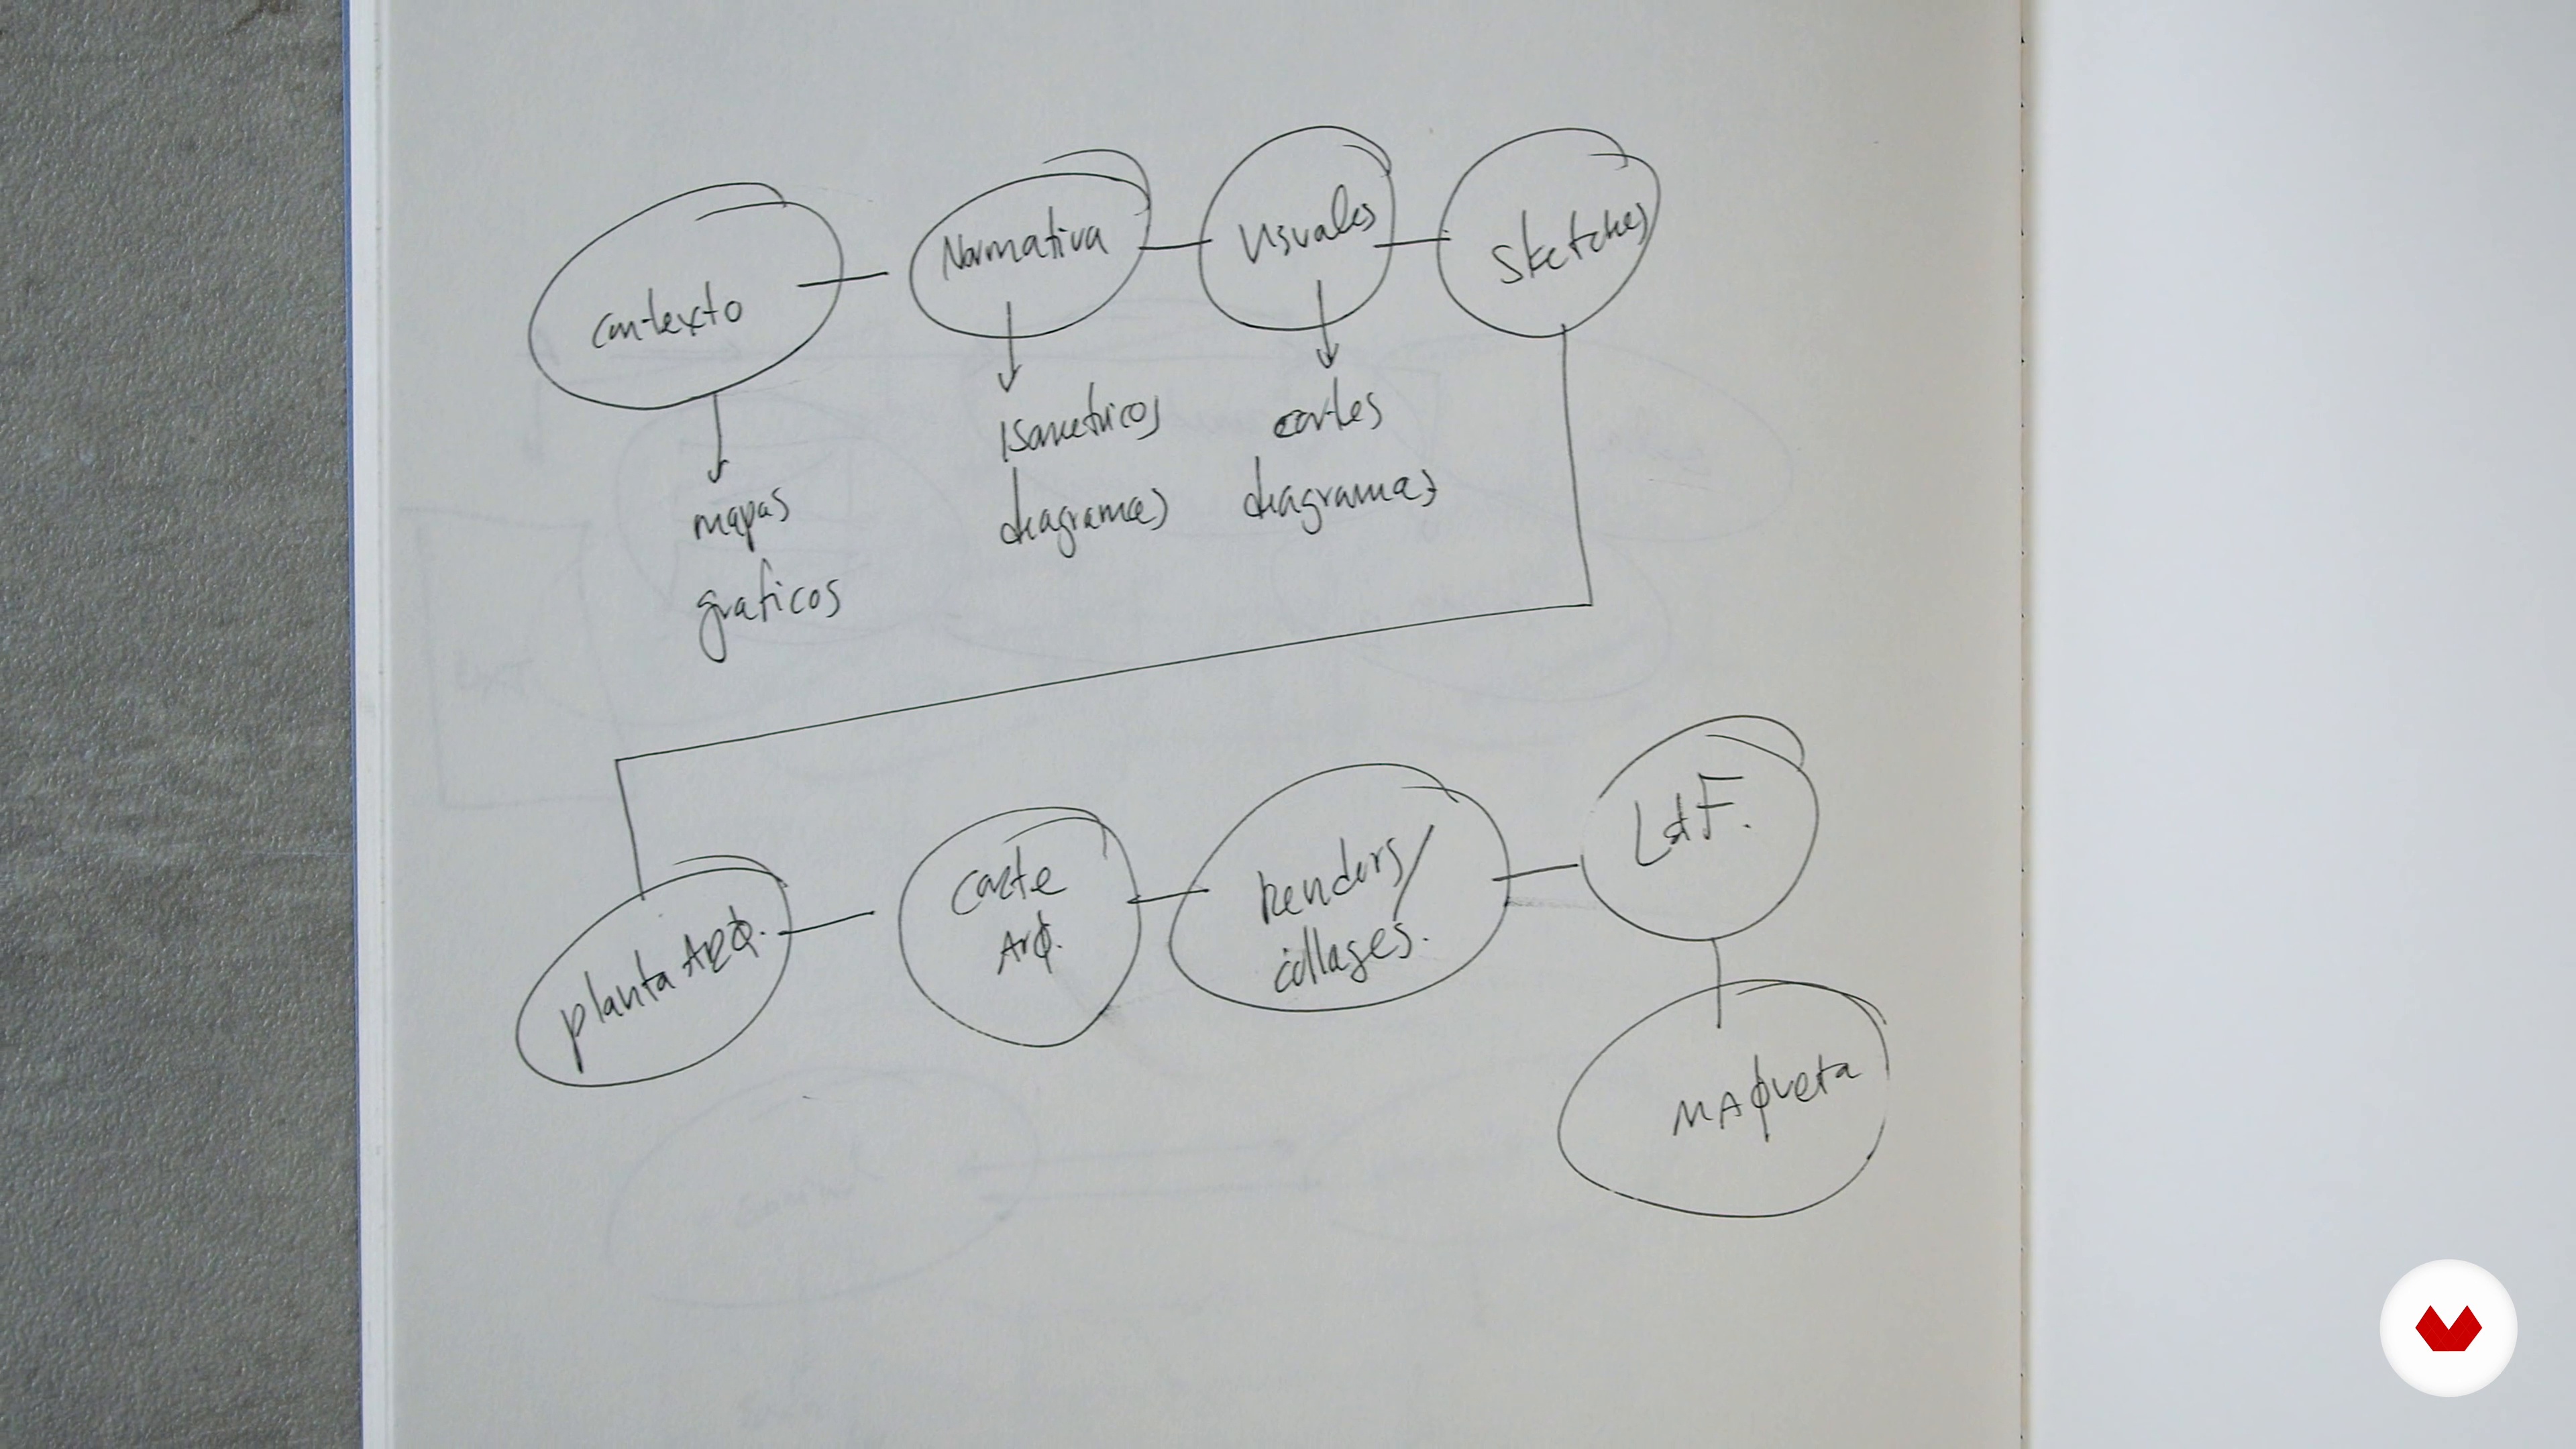 contexto
Normativa
Visuales
Sketches
mapas
graficos
Isometricos
diagramas
cortes
diagramas
planta ARQ.
corte
ArQ.
Renders/
collages.
MAQueta